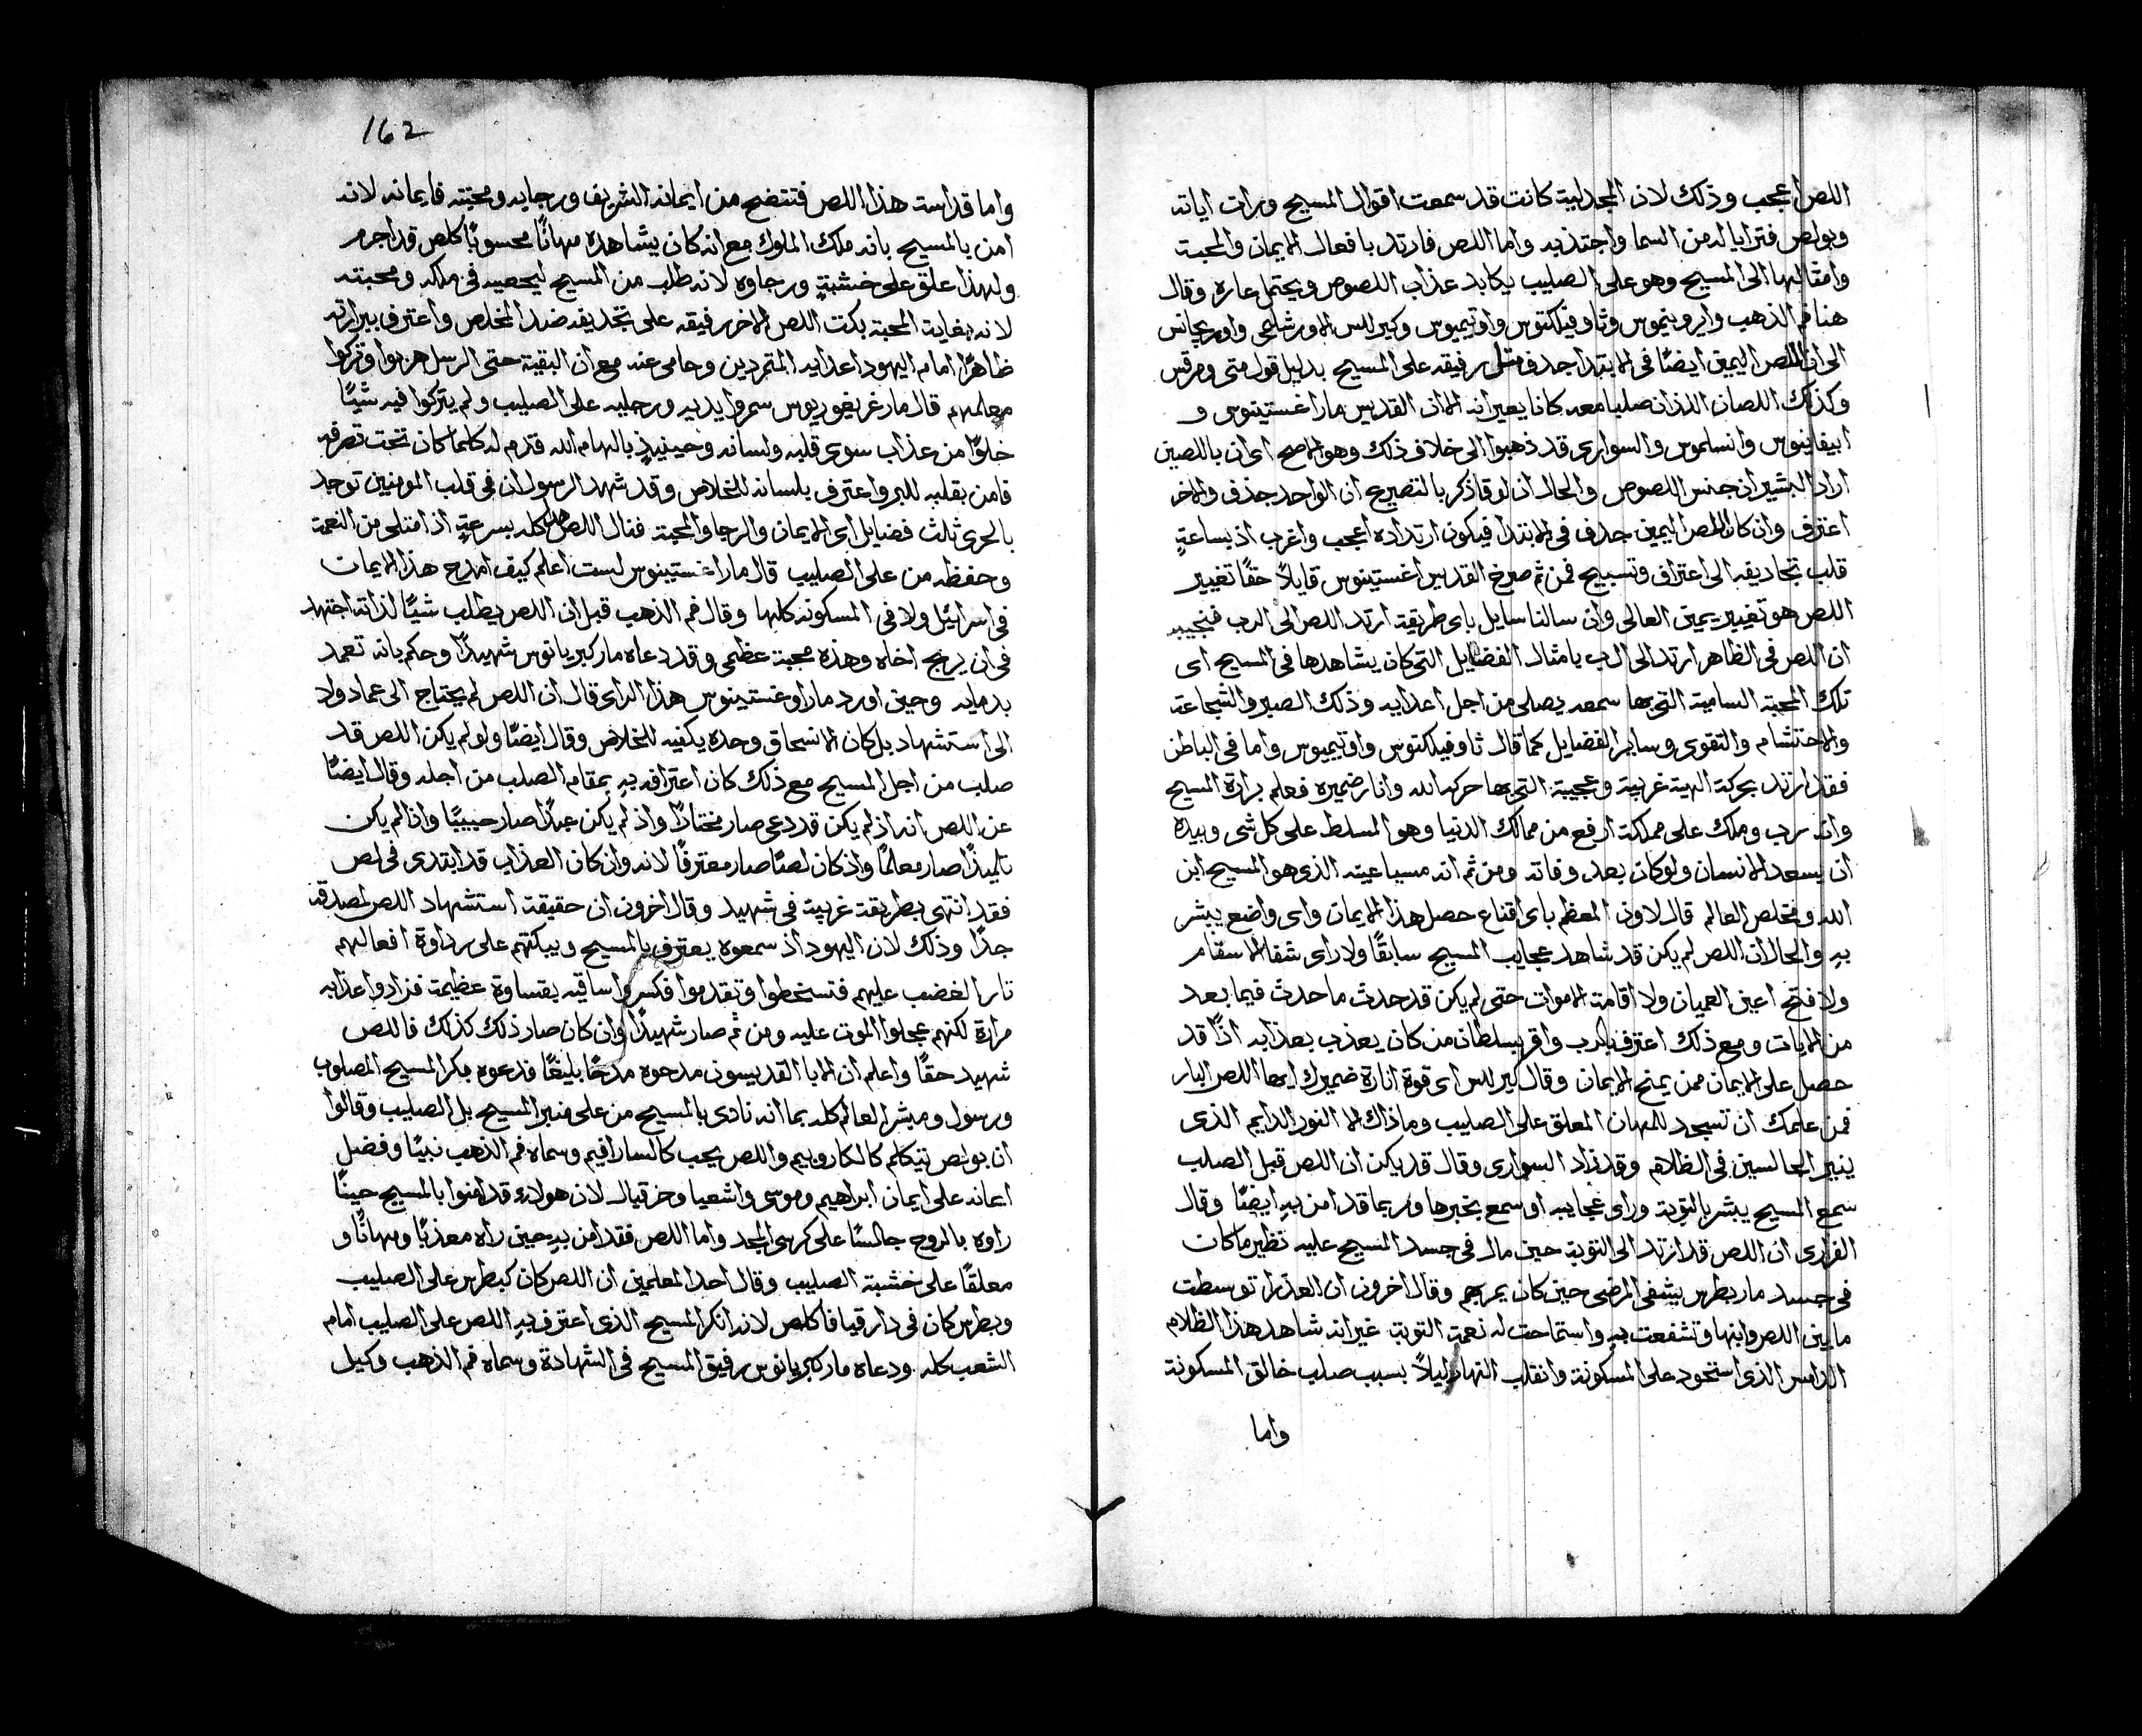 اللص اعجب وذلك لان المجدلية كانت قد سمعت اقوال المسيح ورات اياته
وبولص فترايا له من السما واجتذبه واما اللص فارتد بافعال الايمان والمحبة
وامثالها الى المسيح وهو على الصليب يكابد عذاب اللصوص ويحتمل عاره وقال
هنا فم الذهب وايرونيموس وثاوفيلكتوس واوتيميوس وكيرللس الاورشليمى واوريجانس
الى ان اللص اليمين ايضًا فى الابتدا جدف مثل رفيقه على المسيح بدليل قول متى ومرقس
وكذلك اللصان اللذان صلبا معه كانا يعيرانه الا ان القديس مار اغستينوس و
ابيفانيوس وانسلموس والسوارى قد ذهبوا الى خلاف ذلك وهو الاصح اى ان باللصين
اراد البشير اذ جنس اللصوص والحال ان لوقا ذكر بالتصريح ان الواحد جدف والاخر
اعترف وان كان اللص اليمين جدف فى الابتدا فيكون ارتداده اعجب واغرب اذ بساعةٍ
قلب تجاديفه الى اعتراف وتسبيح فمن ثم صرخ القديس اغستينوس قايلاً حقًا تغيير
اللص هو تغيير يمين العالى وان سالنا سايل باى طريقة ارتد اللص الى الرب فنجيبه
ان اللص فى الظاهر ارتد الى الرب بامثال الفضايل التى كان يشاهدها فى المسيح اى
تلك المحبة السامية التى بها سمعه يصلى من اجل اعدايه وذلك الصبر والشجاعة
والاحتشام والتقوى وساير الفضايل كما قال ثاوفيلكتوس واوتيميوس واما فى الباطن
فقد ارتد بحركة الهية غريبة وعجيبة التى بها حركه الله وانار ضميره فعلم برارة المسيح
وانه رب وملك على مملكة ارفع من ممالك الدنيا وهو المسلط على كل شى وبيده
ان يسعد الانسان ولو كان بعد وفاته ومن ثم انه مسيا عينه الذى هو المسيح ابن
الله ومخلص العالم قال لاون المعظم باى اقناع حصل هذا الايمان واى واضع يبشر
بهِ والحال ان اللص لم يكن قد شاهد عجايب المسيح سابقًا ولا راى شفا الاسقام
ولا فتح اعين العميان ولا اقامة الاموات حتى لم يكن قد حدث ما حدث فيما بعد
من الايات ومع ذلك اعترف بالرب واقر بسلطان من كان يعذب بعذابه اذًا قد
حصل على الايمان ممن يمنح الايمان وقال كيرللس اى قوة انارة ضميرك ايها اللص البار
فمن علمك ان تسجد للمهان المعلق على الصليب وما ذاك الا النور الدايم الذى
ينير الجالسين فى الظلام وقد زاد السوارى وقال قد يكن ان اللص قبل الصلب
سمع المسيح يبشر بالتوبة وراى عجايبه او سمع بخبرها وربما قد امن بهِ ايضًا وقال
الفرارى ان اللص قد ارتد الى التوبة حين مال فى جسد المسيح عليه نظير ما كان
فى جسد مار بطرس يشفى المرضى حين كان يمر بهم وقال اخرون ان العذرا توسطت
ما بين اللص وابنها وتشفعت بهِ واستماحت له نعمة التوبة غير انه شاهد هذا الظلام
الدامس الذى استحود على المسكونة وانقلب النهار ليلاً بسبب صلب خالق المسكونة
واما
162
واما قداسة هذا اللص فتتضح من ايمانه الشريف ورجايه ومحبته فايمانه لانه
امن بالمسيح بانه ملك الملوك مع انه كان يشاهده مهانًا محسوبًا كلص قد اجرم
ولهذا علق على خشبةٍ ورجاوه لانه طلب من المسيح ليحصيه فى ملكه ومحبته
لانه بغاية المحبة بكت اللص الاخر رفيقه على تجديفه ضد المخلص واعترف ببرارته
ظاهرًا امام اليهود اعدايه المتمردين وحامى عنه مع ان البقية حتى الرسل هربوا وتركوا
معلمهم قال مار غريغوريوس سمروا يديه ورجليه على الصليب ولم يتركوا فيه شيًا
خلوًا من عذاب سوى قلبه ولسانه وحينيذٍ بالهام الله قدم له كلما كان تحت تصرفه
فامن بقلبه للبر واعترف بلسانه للخلاص وقد شهد الرسول ان فى قلب المومنين توجد
بالحرى ثلث فضايل اى الايمان والرجا والمحبة فنال اللص هذا كله بسرعةٍ اذ امتلى من النعمة
وحفظه من على الصليب قال مار اغستينوس لست اعلم كيف امدح هذا الايمان
فى اسرائيل ولا فى المسكونه كلها وقال فم الذهب قبل ان اللص يطلب شيًا لذاته اجتهد
فى ان يربح اخاه وهذه محبة عظمى وقد دعاه مار كبريانوس شهيدًا وحكم بانه تعمد
بدمايه وحين اورد مار اوغستينوس هذا الراى قال ان اللص لم يحتاج الى عماد ولا
الى استشهاد بل كان الانسحاق وحده يكفيه للخلاص وقال ايضًا ولو لم يكن اللص قد
صلب من اجل المسيح مع ذلك كان اعترافه بهِ بمقام الصلب من اجله وقال ايضًا
عن اللص انه اذ لم يكن قد دعى صار مختارًا واذ لم يكن عبدًا صار حبيبًا واذ لم يكن
تلميذًا صار معلمًا واذ كان لصًا صار معترفًا لانه وان كان العذاب قد ابتدى فى لص
فقد انتهى بطريقة غريبة فى شهيد وقال اخرون ان حقيقة استشهاد اللص لمصدقة
جدًا وذلك لان اليهود اذ سمعوه يعترف بالمسيح ويبكتهم على رداوة افعالهم
ثار الغضب عليهم فتسخطوا وتقدموا فكسروا ساقيه بقساوة عظيمة فزادوا عذابه
مرارة لكنهم عجلوا الموت عليه ومن ثم صار شهيدًا وان كان صار ذلك كذلك فاللص
شهيد حقًا واعلم ان الابا القديسون مدحوه مدحًا بليغًا فدعوه بكر المسيح المصلوب
ورسول ومبشر العالم كله بما انه نادى بالمسيح من على منبر المسيح بل الصليب وقالوا
ان بولص يتكلم كالكاروبيم واللص يحب كالسارافيم وسماه فم الذهب نبيًا وفضل
ايمانه على ايمان ابراهيم وموسى واشعيا وحزقيال لان هولاء قد امنوا بالمسيح حينًا
راوه بالروح جالسًا على كرسى المجد واما اللص فقد امن بهِ حين راه معذبًا ومهانًا و
معلقًا على خشبة الصليب وقال احد المعلمين ان اللص كان كبطرس على الصليب
وبطرس كان فى دار قيافا كلص لانه انكر المسيح الذى اعترف بهِ اللص على الصليب امام
الشعب كله ودعاه مار كبريانوس رفيق المسيح فى الشهادة وسماه فم الذهب وكيل